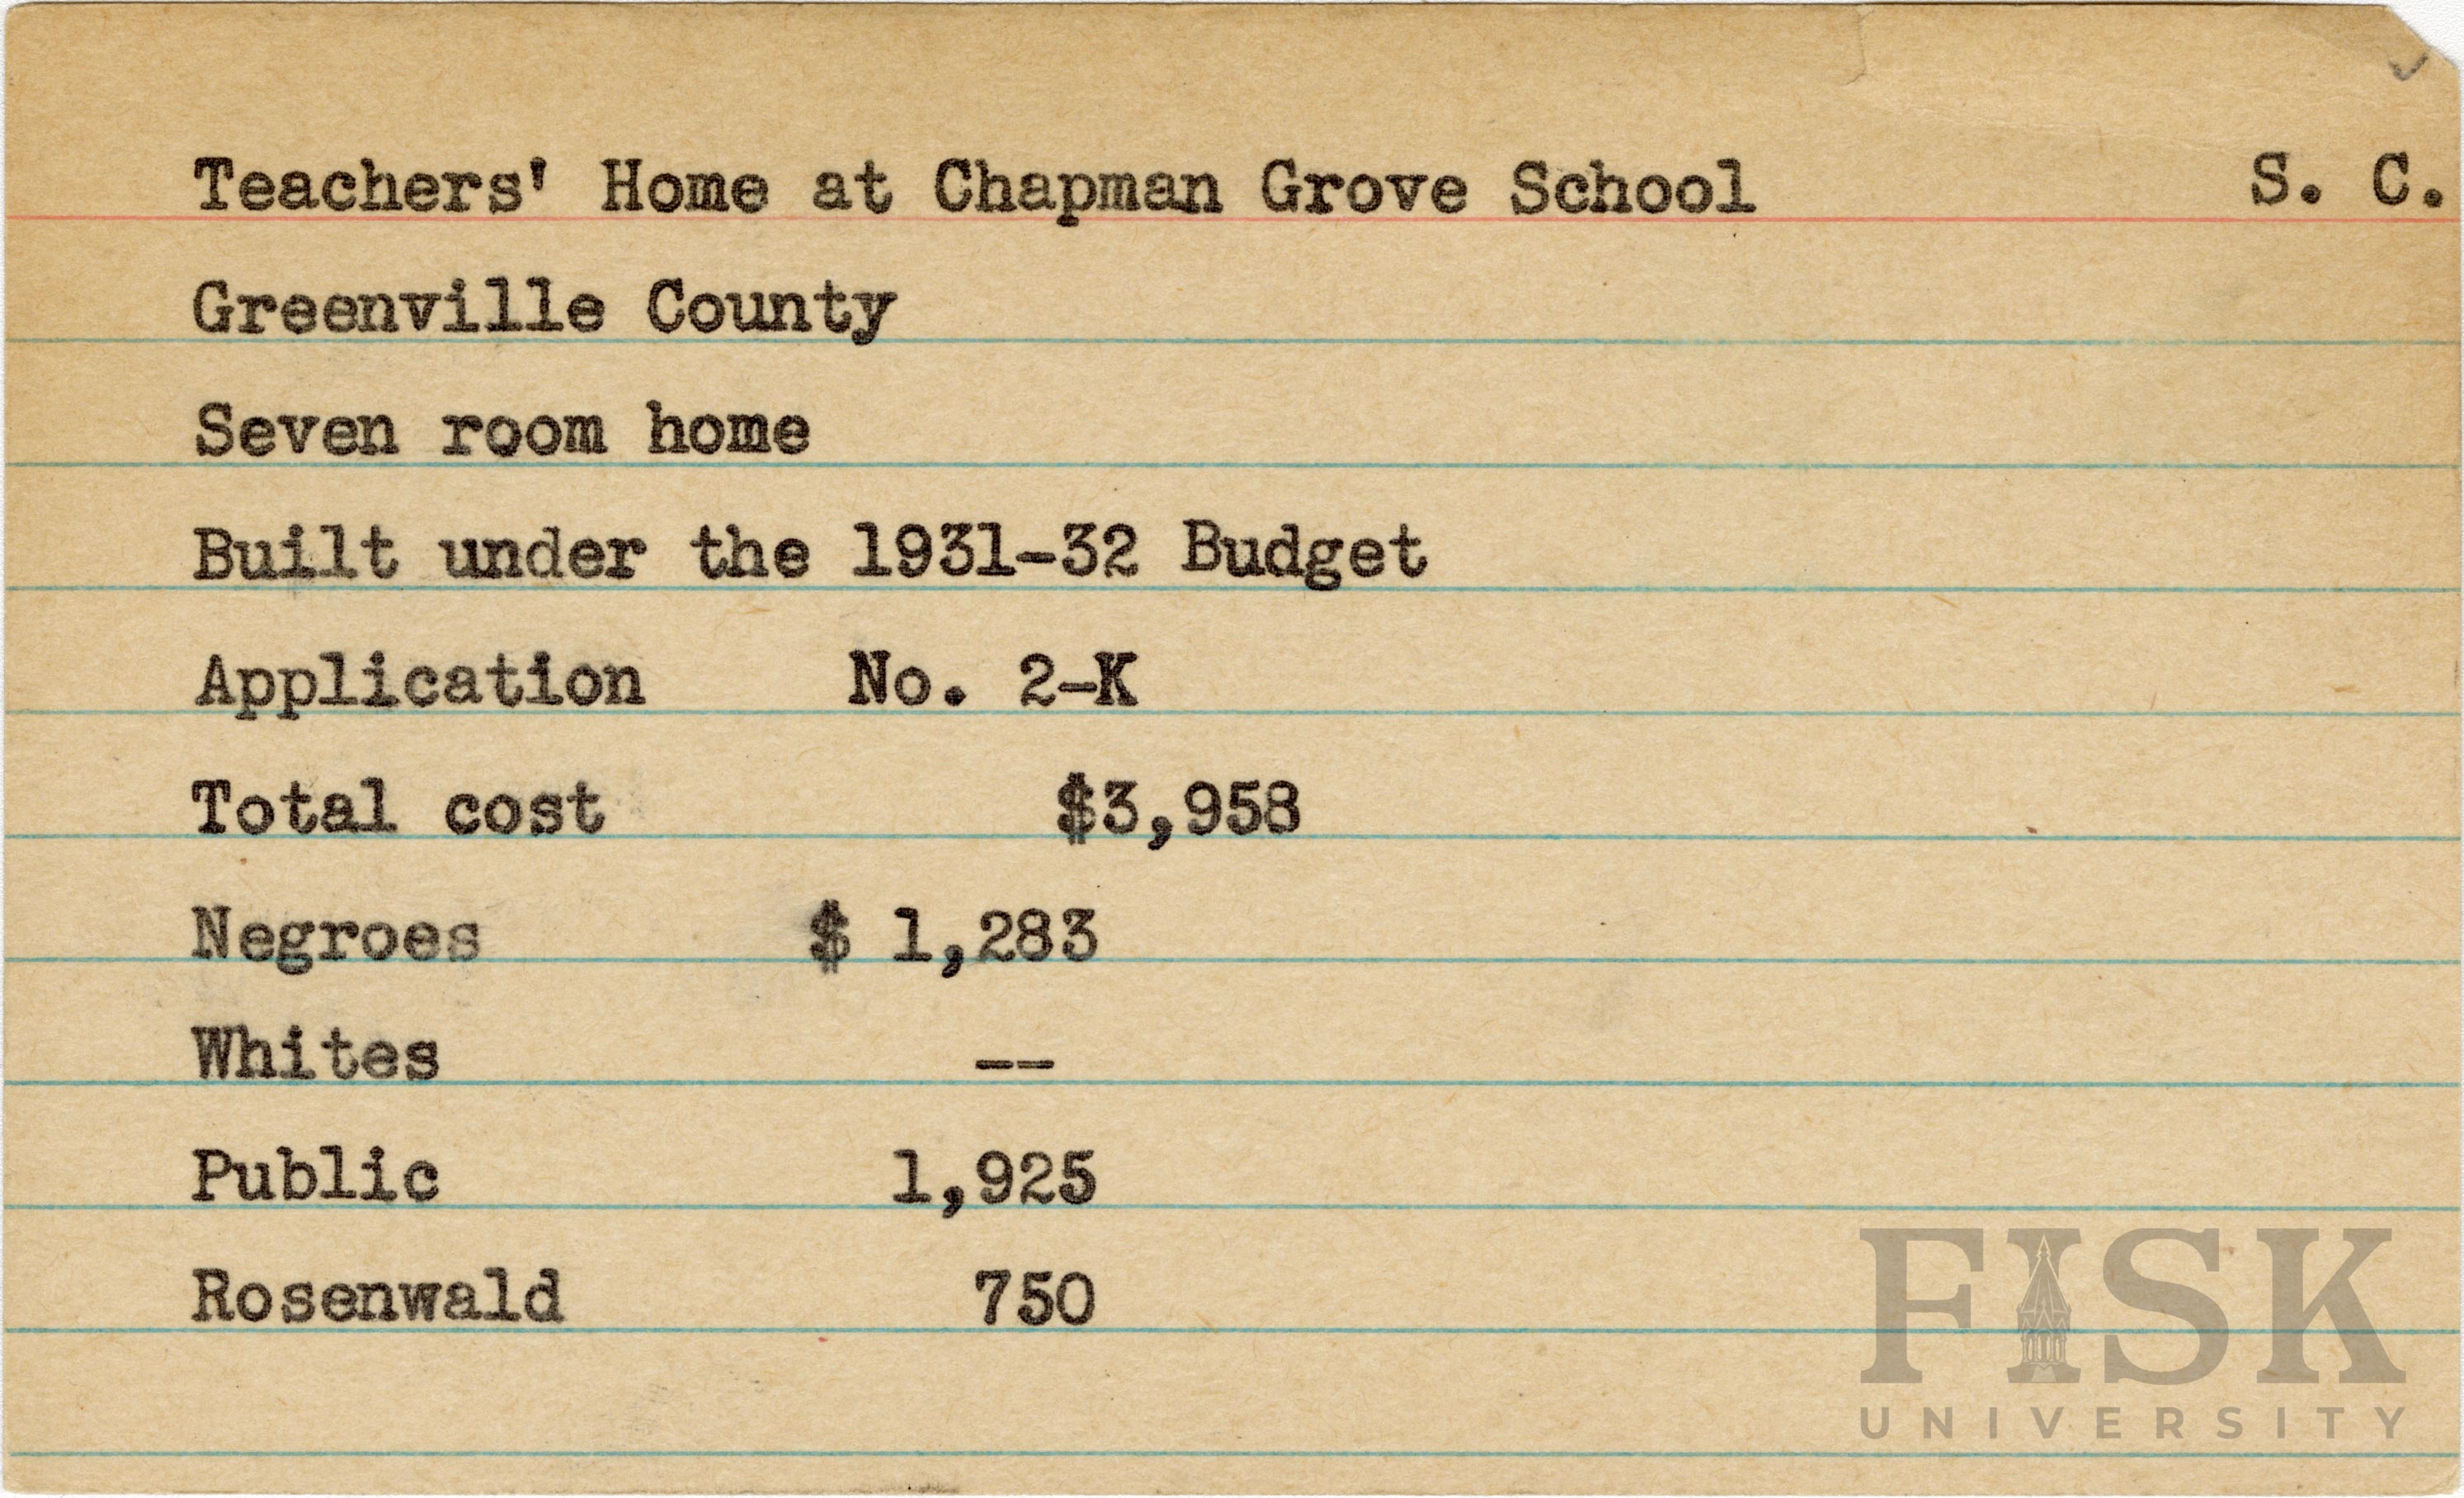 Teachers' Home at Chapman Grove School S. C.
Greenville County
Seven room home
Built under the 1931-32 Budget
Application No. 2-K
Total cost $3,958
Negroes $ 1,283
Whites --
Public 1,925
Rosenwald 750
FISK
UNIVERSITY